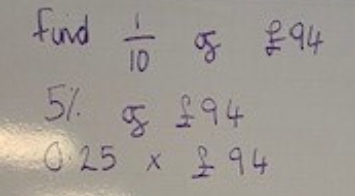 find 1/10 of £94
5% of £94
0.25 x £94